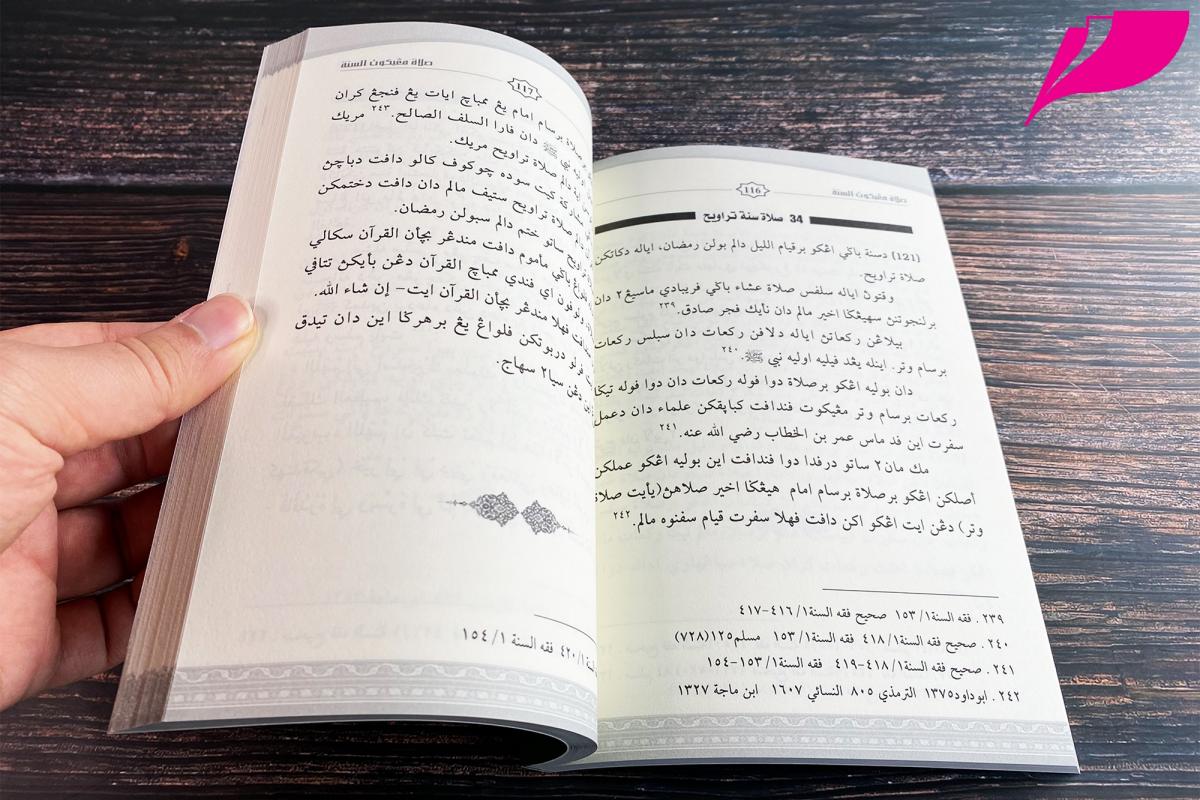 صلاة مڠيكوت السنة
116
34 صلاة سنة تراويح
(121) دسنة باڬي اڠكو برقيام الليل دالم بولن رمضان، اياله دكاتكن
صلاة تراويح.
وقتوڽ اياله سلفس صلاة عشاء باڬي فريبادي ماسيڠ٢ دان
برلنجوتڽ سهيڠڬا اخير مالم دان نأيك فجر صادق.٢٣٩
بيلاڠن ركعاتڽ اياله دلافن ركعات دان سبلس ركعات
برسام وتر. اينله يڠد فيليه اوليه نبي ﷺ.٢٤٠
دان بوليه اڠكو برصلاة دوا فوله ركعات دان دوا فوله تيڬا
ركعات برسام وتر مڠيكوت فندافت كباپقكن علماء دان دعمل
سفرت اين فد ماس عمر بن الخطاب رضي الله عنه.٢٤١
مك مان٢ ساتو درفدا دوا فندافت اين بوليه اڠكو عملكن
أصلكن اڠكو برصلاة برسام امام هيڠڬا اخير صلاهڽ(يأيت صلاة
وتر) دڠن ايت اڠكو اكن دافت فهلا سفرت قيام سفنوه مالم.٢٤٢
٢٣٩ . فقه السنة١/ ١٥٣ صحيح فقه السنة١/ ٤١٦-٤١٧
٢٤٠ . صحيح فقه السنة١/ ٤١٨ فقه السنة١/ ١٥٣ مسلم١٢٥(٧٢٨)
٢٤١ . صحيح فقه السنة١/ ٤١٨-٤١٩ فقه السنة١/ ١٥٣-١٥٤
٢٤٢ . ابوداود١٣٧٥ الترمذي ٨٠٥ النسائي ١٦٠٧ ابن ماجة ١٣٢٧
صلاة مڠيكوت السنة
117
صلاة برسام امام يڠ ممباچ ايات يڠ فنجڠ كران
اوليه نبي ﷺ دان فارا السلف الصالح.٢٤٣ مريك
دالم صلاة تراويح مريك.
كيت سوده چوكوف كالو دافت دباچڽ
دالم صلاة تراويح ستيف مالم دان دافت دختمكن
تراويح ساتو ختم دالم سبولن رمضان.
فلواڠ باڬي مأموم دافت مندڠر بچأن القرآن سكالي
ولوفون اي فندي ممباچ القرآن دڠن بأيكڽ تتافي
فهلا مندڠر بچأن القرآن ايت- إن شاء الله.
فرلو دربوتكن فلواڠ يڠ برهرڬا اين دان تيدق
دڠن سيا٢ سهاج.
١/ ٤٢٠ فقه السنة ١/ ١٥٤